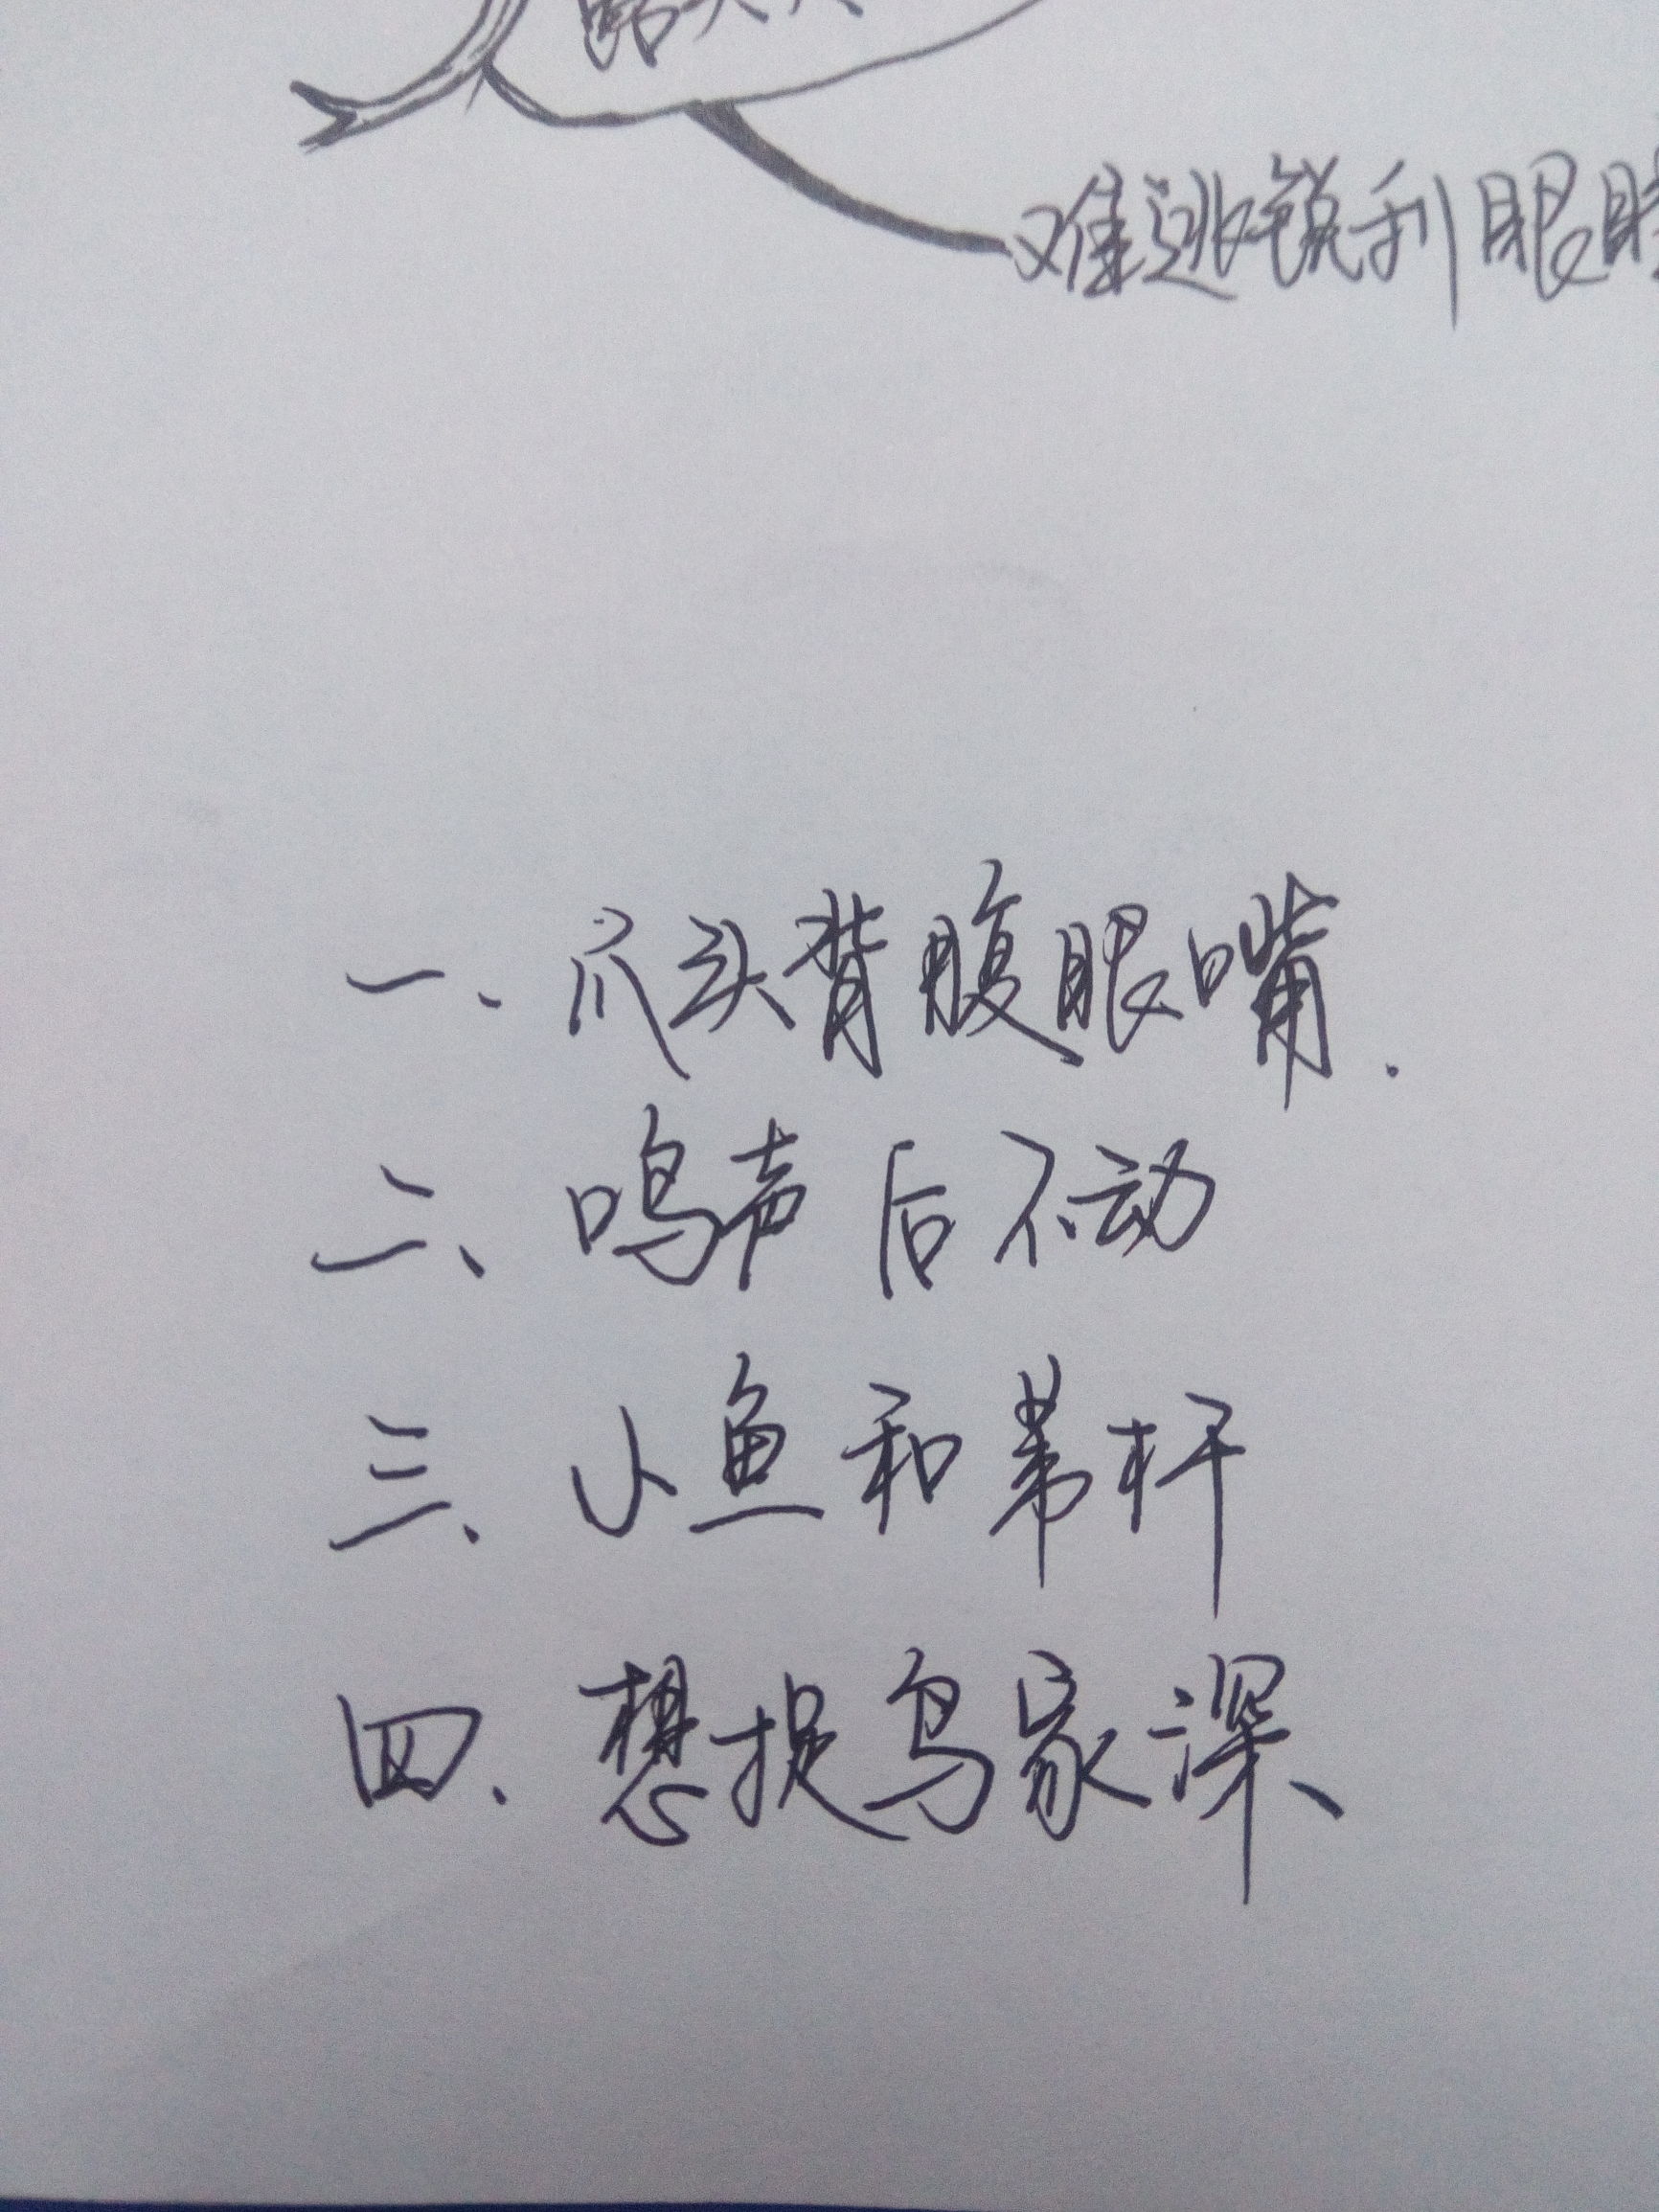 难逃锐利眼睛
一、爪头背腹眼嘴.
二、鸣声后不动
三、小鱼和苇杆
四、想捉鸟家深